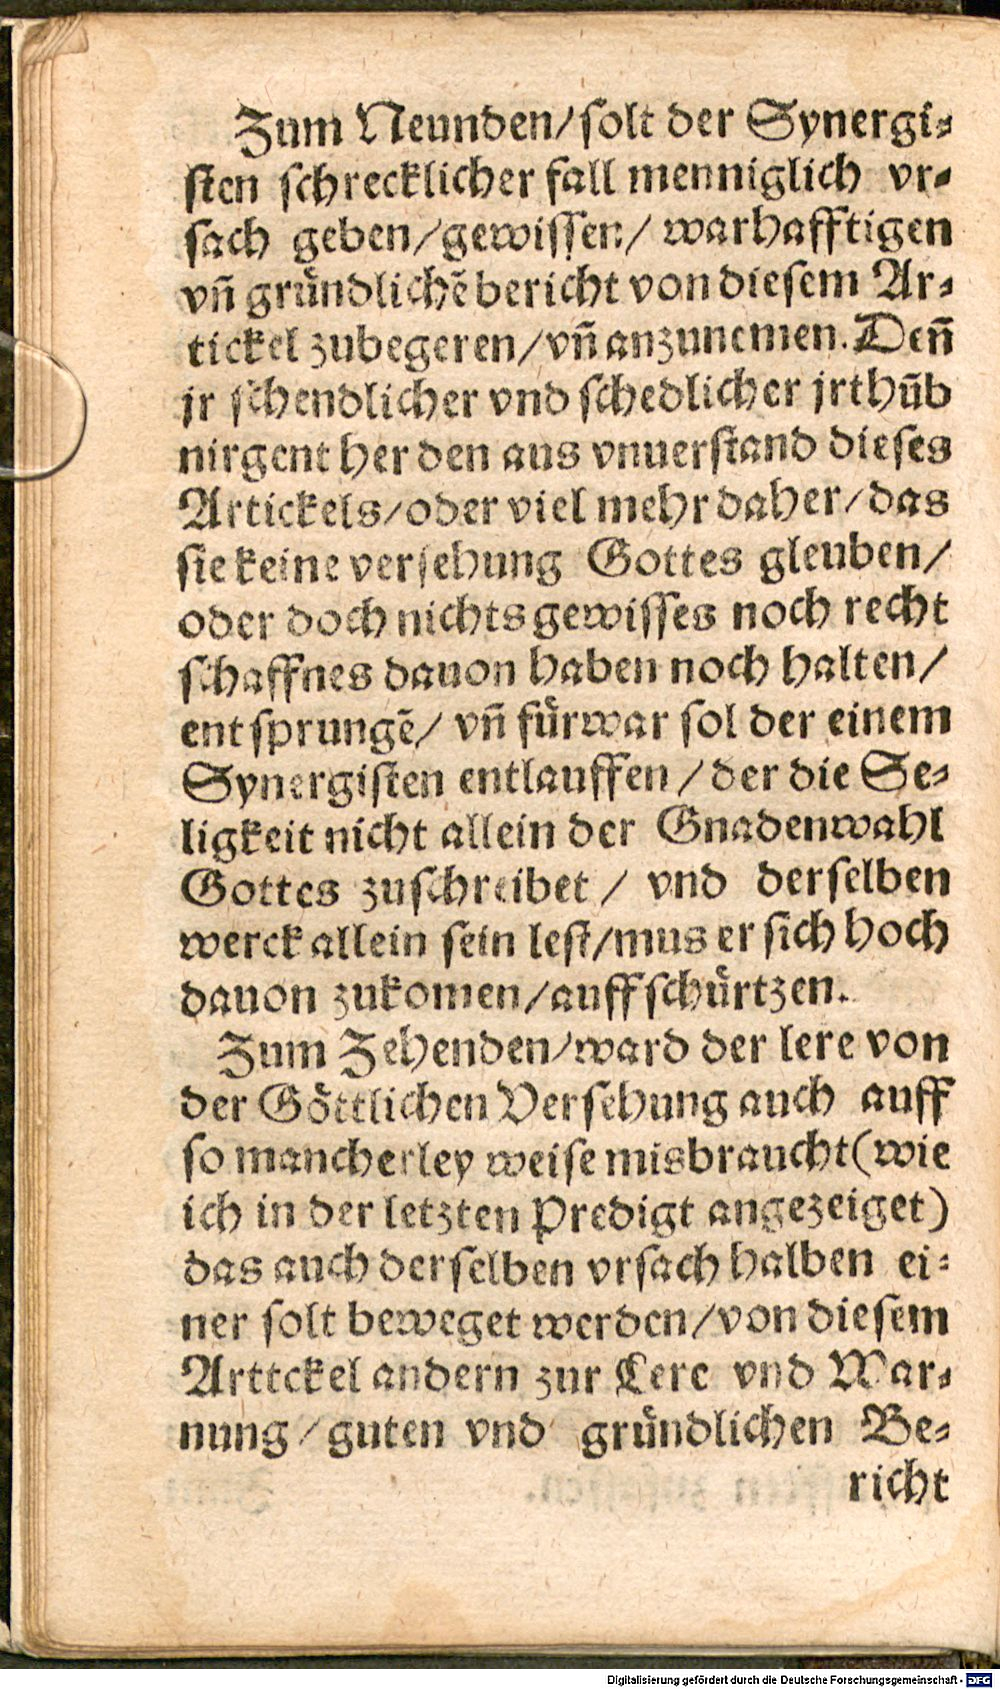 Zum Neunden/solt der Synergi-
sten schrecklicher fall menniglich vr-
sach geben/gewissen/ warhafftigen
vñ gründlichẽ bericht von diesem Ar-
tickel zubegeren/vñ anzunemen. Deñ
jr schendlicher vnd schedlicher jrthũb
nirgent her den aus vnuerstand dieses
Artickels/oder viel mehr daher/das
sie keine versehung Gottes gleuben/
oder doch nichts gewisses noch recht
schaffnes dauon haben noch halten/
entsprungẽ/ vñ fürwar sol der einem
Synergisten entlauffen/der die Se-
ligkeit nicht allein der Gnadenwahl
Gottes zuschreibet/ vnd derselben
werck allein sein lest/mus er sich hoch
dauon zukomen/auffschürtzen.
Zum Zehenden/ward der lere von
der Göttlichen Versehung auch auff
so mancherley weise misbraucht(wie
ich in der letzten Predigt angezeiget)
das auch derselben vrsach halben ei-
ner solt beweget werden/von diesem
Arttckel andern zur Lere vnd War-
nung/guten vnd gründlichen Be-
richt
Digitalisierung gefördert durch die Deutsche Forschungsgemeinschaft - DFG